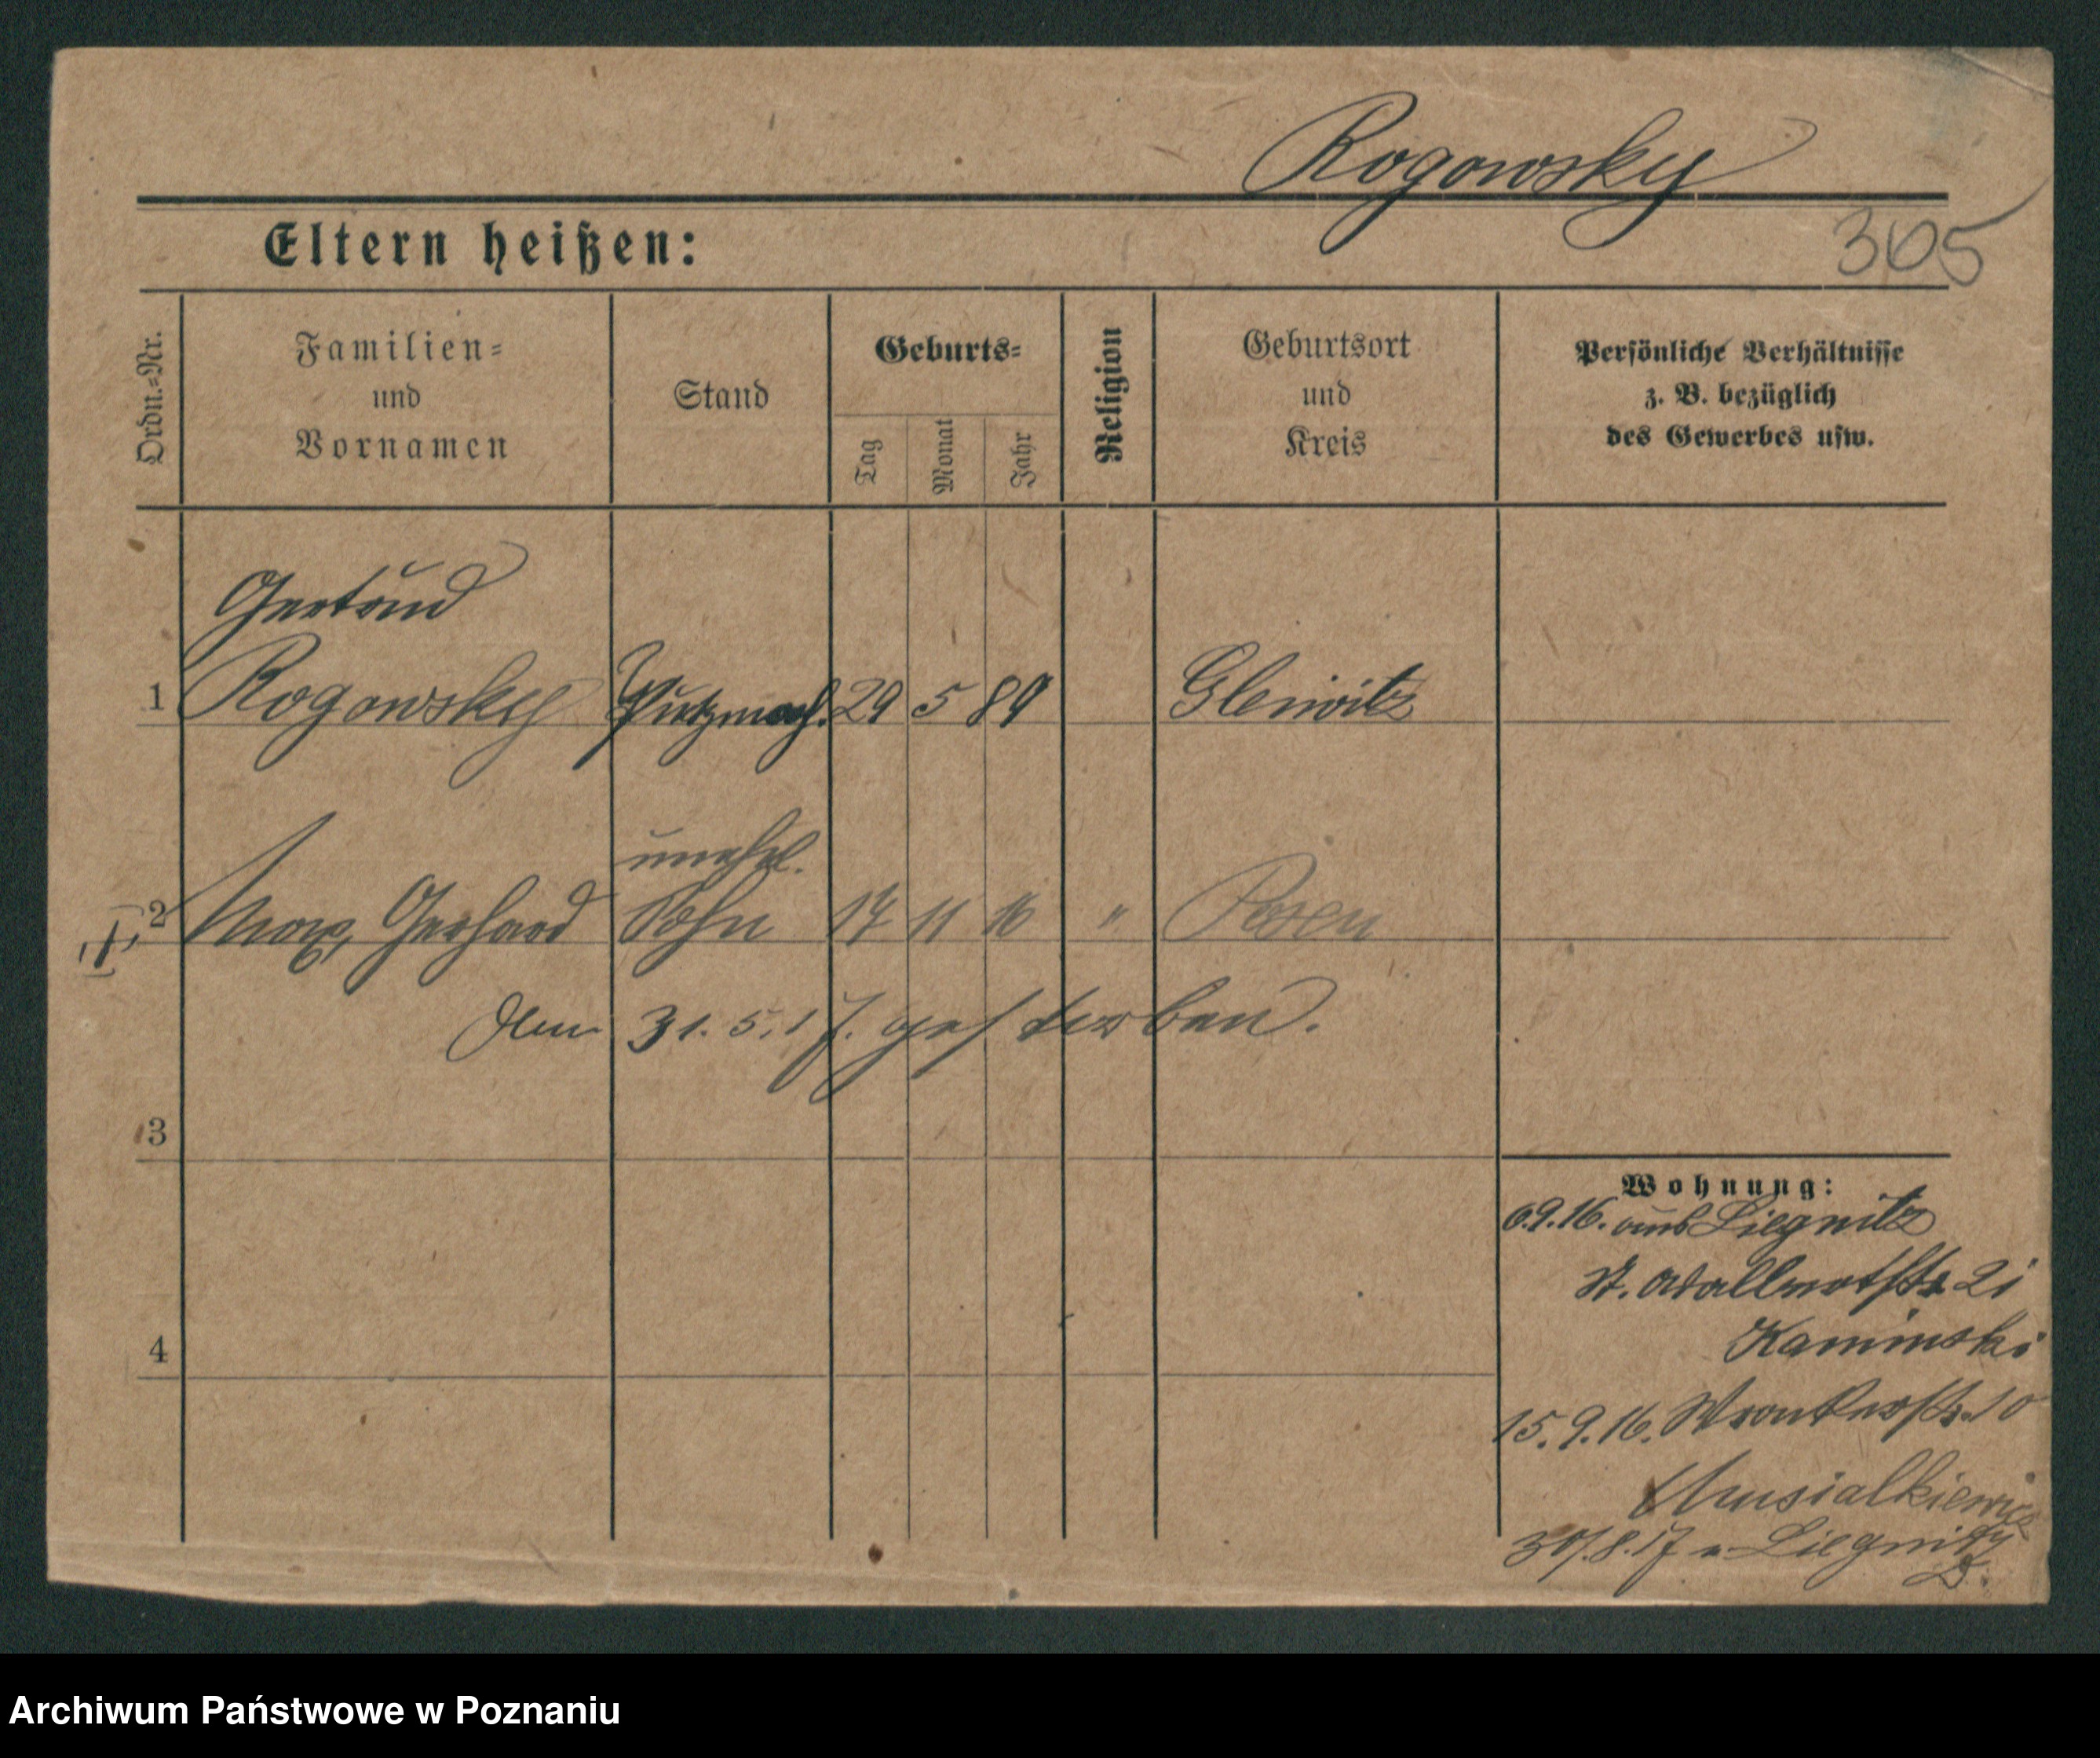 Rogowsky
Eltern heißen:
365
Ordn.-Nr.
Familien-
und
Vornamen
Stand
Geburts-
Tag
Monat
Jahr
Religion
Geburtsort
und
Kreis
Persönliche Verhältnisse
z. B. bezüglich
des Gewerbes usw.
Gertrud
1 Rogowsky Putzmach. 29 5 89 Gleiwitz
unehel.
2 Max, Gerhard Sohn 17 11 16 " Posen
31. 5. 17. gestorben.
3
Wohnung:
6.9.16. aus Liegnitz
St. Adalbertstr. 21
4
Kaminski
15.9.16. Wronkerstr. 10
Musialkiewicz
30/.8.17 n. Liegnitz
Archiwum Państwowe w Poznaniu